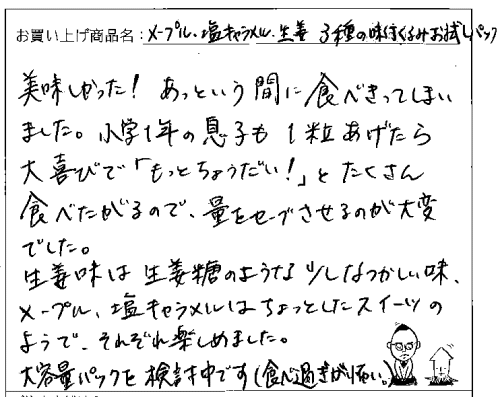 お買い上げ商品名：メープル、塩キャラメル、生姜 3種の味付くるみお試しパック
美味しかった！ あっという間に食べきってしまい
ました。小学1年の息子も1粒あげたら
大喜びで「もっとちょうだい！」とたくさん
食べたがるので、量をセーブさせるのが大変
でした。
生姜味は生姜糖のような少しなつかしい味、
メープル、塩キャラメルはちょっとしたスイーツの
ようで、それぞれ楽しめました。
大容量パックを検討中です(食べ過ぎが怖い。)